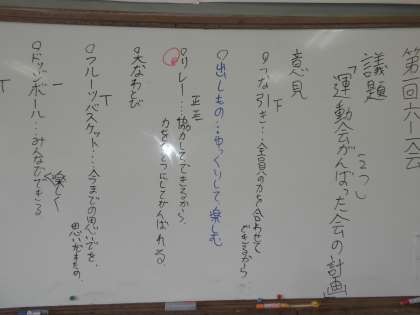 第一回六一会
議題
「運動会がんばった会の計画」
(2つ)
意見
○つな引き…全員の力を合わせて
できるから
下
○出しもの…ゆっくりして楽しむ
正正
○リレー…協力してできるから、
力を一つにしてがんばれる
○大なわとび
○フルーツバスケット…今までの思いでを、
T
○ドッジボール…みんなでできる
楽しく
一
T